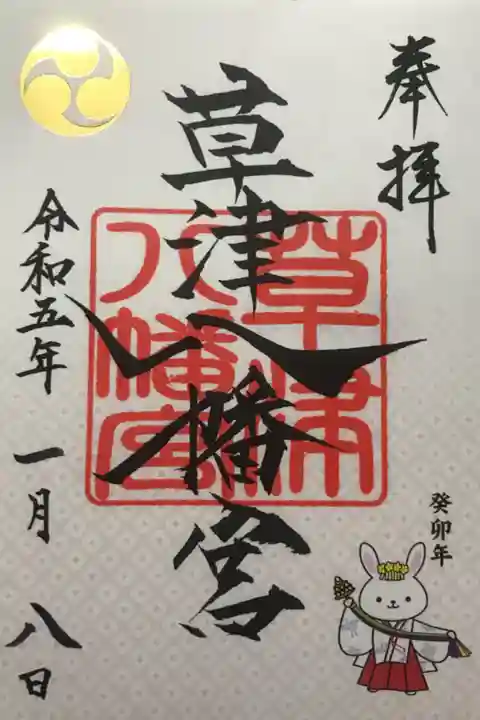 奉拝
草津八幡宮
草津八幡宮
令和五年 一月 八日
癸卯年